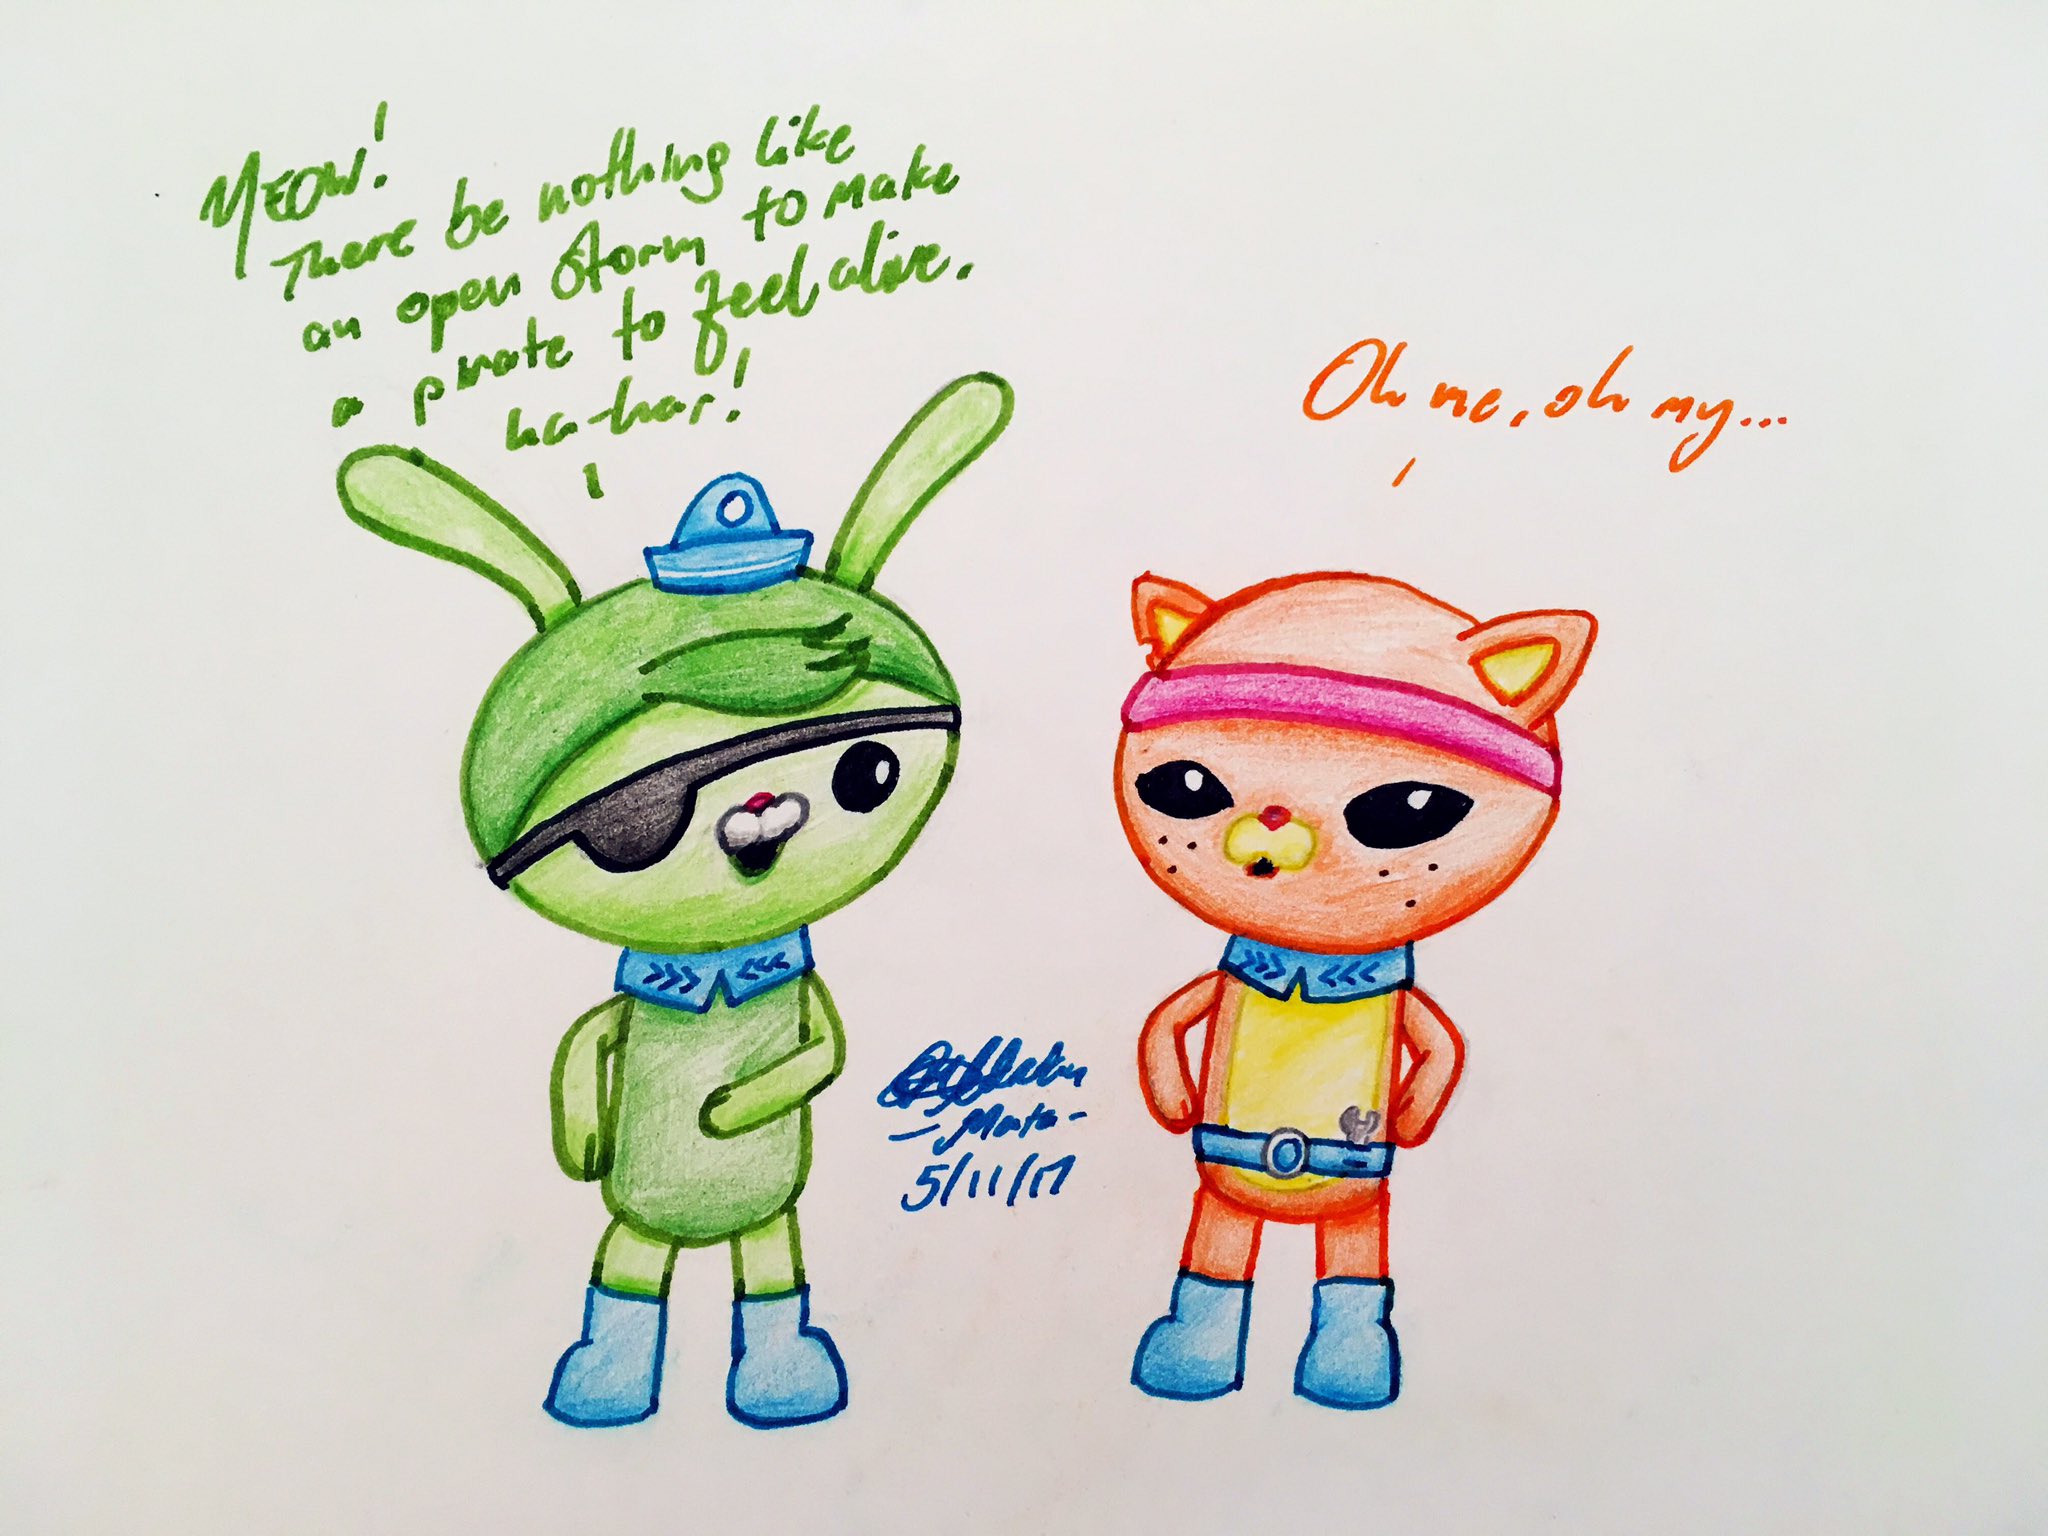 MEOW!
There be nothing like
an open storm to make
a pirate to feel alive.
ha-har!
Oh me, oh my...
-Mata-
5/11/17